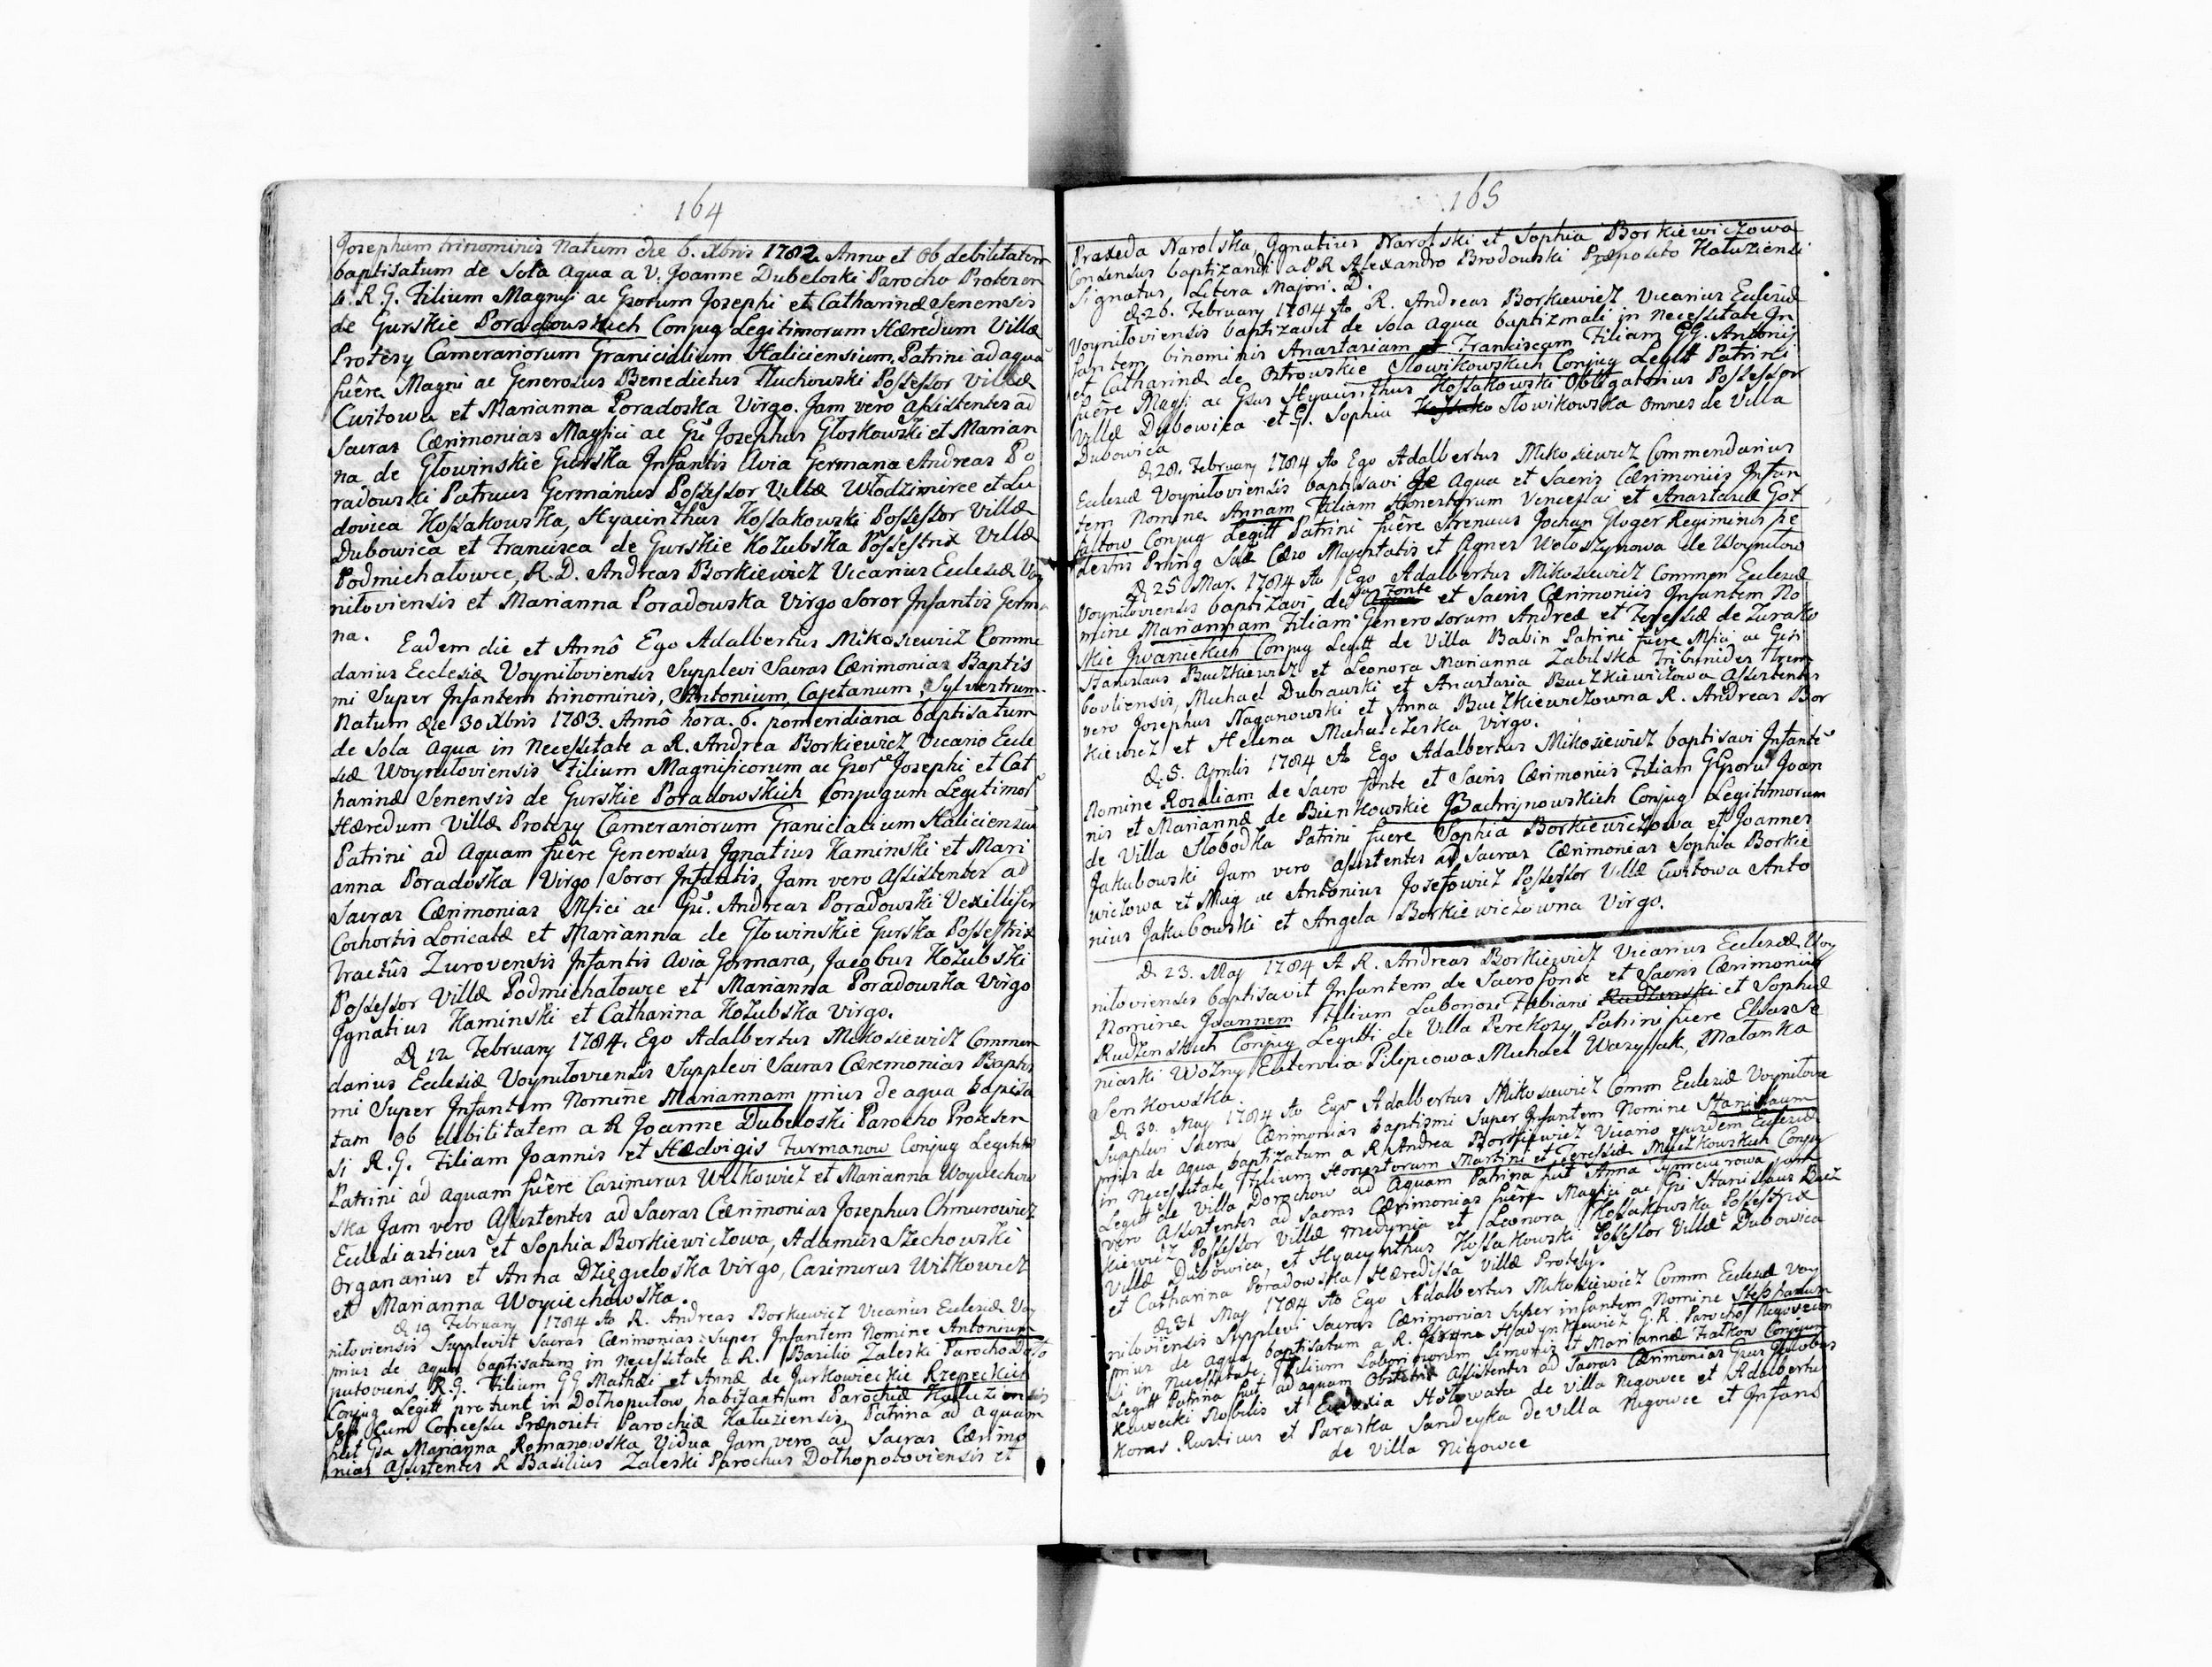 164
Josephum trinominis Natum die 6. Xbris 1782 Anno et ob debilitatem
baptisatum de Sola Aqua a V. Joanne Dubeloski Parocho Protesen
si. R. G. Filium Magnifi ac Gsorum Josephi et Catharinæ Senensis
de Gurskie Poradowskich Conjug Legitimorum Hæredum Villæ
Protesy Camerariorum Granicialium Haliciensium. Patrini ad aquã
fuêre Magni ac Generosus Benedictus Tluchowski Possessor Villæ
Cwitowa et Marianna Poradoska Virgo. Jam vero Assistentes ad
Sacras Cærimonias Magfici ac Gsi Josephus Gloskowski et Marian
na de Głowinskie Gurska Infantis Avia Germana Andreas Po
radowski Patruus Germanus Possessor Villæ Włodzimirce et Lu
dovica Kossakowska, Hyacinthus Kossakowski Possessor Villæ
Dubowica et Francisca de Gurskie Kożubska Possestrix Villæ
Podmichałowce, R. D. Andreas Borkiewicz Vicarius Ecclesiæ Voy
niloviensis et Marianna Poradowska Virgo Soror Infantis Germa
na.
Eadem die et Annô Ego Adalbertus Mikosiewicz Commen
darius Ecclesiæ Voyniloviensis Supplevi Sacras Cærimonias Baptis
mi Super Infantem trinominis, Antonium, Cajetanum, Sylvestrum
Natum die 30 Xbris 1783. Annô hora. 6. pomeridiana baptisatum
de Sola aqua in Necessitate a R. Andrea Borkiewicz Vicario Eccle
siæ Woyniloviensis Filium Magnificorum ac Gsor Josephi et Cat
harinæ Senensis de Gurskie Poradowskich Conjugum Legitimor
Hæredum Villæ Protesy Camerariorum Granicialium Haliciensiũ
Patrini ad Aquam fuêre Generosus Ignatius Kaminski et Mari
anna Poradoska Virgo Soror Infantis, Jam vero Assistentes ad
Sacras Cærimonias Mfici ac Gsi. Andreas Poradowski Vexillifer
Cohortis Loricatæ et Marianna de Głowinskie Gurska Possestrix
Tractûs Zurovensis Infantis Avia Germana, Jacobus Kożubski
Possessor Villæ Podmichałowce et Marianna Poradowska Virgo
Ignatius Kaminski et Catharina Kożubska Virgo.
D. 12 February 1784. Ego Adalbertus Mikosiewicz Commen
darius Ecclesiæ Voyniloviensis Supplevi Sacras Cæremonias Baptis
mi Super Infantem Nomine Mariannam prius de aqua Baptisa
tam ob debilitatem a R Joanne Dubeloski Parocho Protesen
si R. G. Filiam Joannis et Hædvigis Furmanow Conjug Legitti
Patrini ad aquam fuêre Casimirus Witkowicz et Marianna Woyciechow
ska Jam vero Assistentes ad Sacras Cærimonias Josephus Chmurowicz
Ecclesiasticus et Sophia Borkiewiczowa, Adamus Szechowski
Organarius et Anna Dzięgieloska Virgo, Casimirus Witkowicz
et Marianna Woyciechowska.
D. 19 February 1784 Ao R. Andreas Borkiewicz Vicarius Ecclesiæ Voy
niloviensis Supplevit Sacras Cærimonias Super Infantem Nomine Antonium
prius de aqua baptisatum in Necessitate a R. Basilio Zaleski Parocho Dołho
putoviens R. G. Filium GG Mathæi et Annæ de Jurkowieckie Rzepeckich
Conjug Legitt pro tunc in Dołhoputow, habitantium Parochiæ Kałuziensis
Sed Cum Concessu Præpositi Parochiæ Kałuziensis Patrina ad Aquam
fuit Gsa Marianna Romanowska Vidua Jam vero ad Sacras Cærimo
nias Assistentes R Basilius Zaleski Parochus Dołhopotoviensis et
165
Praxeda Narolska Ignatius Narolski et Sophia Borkiewiczowa
Consensus baptizandi a P R Alexandro Brodowski Præposito Kałuziensi
Signatus Litera Majori. D.
D. 26. February 1784 Ao R. Andreas Borkiewicz Vicarius Ecclesiæ
Voyniloviensis baptizavit de Sola aqua baptizmali in Necessitate In
fantem binominis Anastasiam et Franciscam Filiam GG. Antonij
et Catharinæ de Ostrowskie Słowikowskich Conjug Legitt Patrini
fuêre Magfi ac Gsus Hyacinthus Kossakowski Obligatorius Possessor
Villæ Dubowica et G. Sophia Kossako Słowikowska omnes de Villa
Dubowica
D. 28. February 1784 Ao Ego Adalbertus Mikosiewicz Commendarius
Ecclesiæ Voyniloviensis baptisavi de Aqua et Sacris Cærimoniis Infan
tem Nomine Annam Filiam Honestorum Venceslai et Anastasiæ Got
faltow Conjug Legitt Patrini fuêre Strenuus Jochan Gloger Regiminis pe
destris Pring Saæ Cæso Majestatis et Agnes Wołoszynowa de Woynilow
D. 25 Mar. 1784 Ao Ego Adalbertus Mikosiewicz Commen Ecclesiæ
Voyniloviensis baptizavi de Sa Fonte et Sacris Cærimoniis Infantem No
mine Mariannam Filiam Generosorum Andreæ et Teressiæ de Zurako
skie Iwanickich Conjug Legitt de Villa Babin Patrini fuêre Mfici ac Gsi
Stanislaus Buczkiewicz et Leonora Marianna Zabilska Tribunides Trem
bovliensis, Michael Dubrawski et Anastasia Buczkiewiczowa Assistentes
vero Josephus Naganowski et Anna Buczkiewiczowna R. Andreas Bor
kiewicz et Helena Michalczeska Virgo.
D. 5. Aprilis 1784 Ao Ego Adalbertus Mikosiewicz baptisavi Infantẽ
Nomine Rosaliam de Sacro fonte et Sacris Cærimoniis Filiam GGsoru Joan
nis et Mariannæ de Bienkowskie Bachrynowskich Conjug Legitimorum
de Villa Słobodka Patrini fuere Sophia Borkiewiczowa et Joannes
Jakubowski Jam vero assistentes ad Sacras Cærimonias Sophia Borkie
wiczowa et Mag ac Antonius Josefowicz Possessor Villæ Cwitowa Anto
nius Jakubowski et Angela Borkiewiczowna Virgo.
D. 23. May 1784 A R. Andreas Borkiewicz Vicarius Ecclesiæ Woy
niloviensis baptisavit Infantem de Sacro fonte et Sacris Cærimoniis
Nomine Joannem Filium Laboriosi Fabiani Rudzenski et Sophiæ
Rudzenskich Conjug Legitti de Villa Perekosy, Patrini fuere Elias Se
niaski Wozny Eutervia Pilipcowa Michael Waszyłak, Małanka
Senkowska.
D. 30. May 1784 Ao Ego Adalbertus Mikosiewicz Comm Ecclesiæ Voynilovie
Supplevi Sacras Cærimonias Baptismi Super Infantem Nomine Stanislaum
prius de aqua baptizatum a R Andrea Borkiewicz Vicario ejusdem Ecclesiæ
in Necessitate Filium Honestorum Martini et Teressiæ Myczkowskich Conjug
Legitt de Villa Dorochow ad Aquam Patrina fuit Anna
vero Assistentes ad Sacras Cærimonias fuêre Magfici ac Gsi Stanislaus Bucz
kiewicz Possessor Villæ Medynia et Leonora Kossakowska Possestrix
Villæ Dubowica, et Hyacynthus Kossakowski Possessor Villæ Dubowica
et Catharina Poradowska Hæredissa Villæ Protesy.
D. 31 May 1784 Ao Ego Adalbertus Mikosiewicz Comm Ecclesiæ Voy
niloviensis Supplevi Sacras Cærimonias Super infantem Nomine Stephanum
prius de aqua baptisatum a R. G. R. Parocho
si in Necessitate, Filium Laboriosorum Simonis et Mariannæ Fiałkow Conjugum
Legitt Patrina fuit ad aquam Obstetrix Assistentes ad Sacras Cærimonias Gsus Jacobus
Nobilis et Hołowata de Villa Nigowce et Adalbertus
Koros Rusticus et Paraska Sandeyka de Villa Nigowce et Infans
de Villa Nigowce